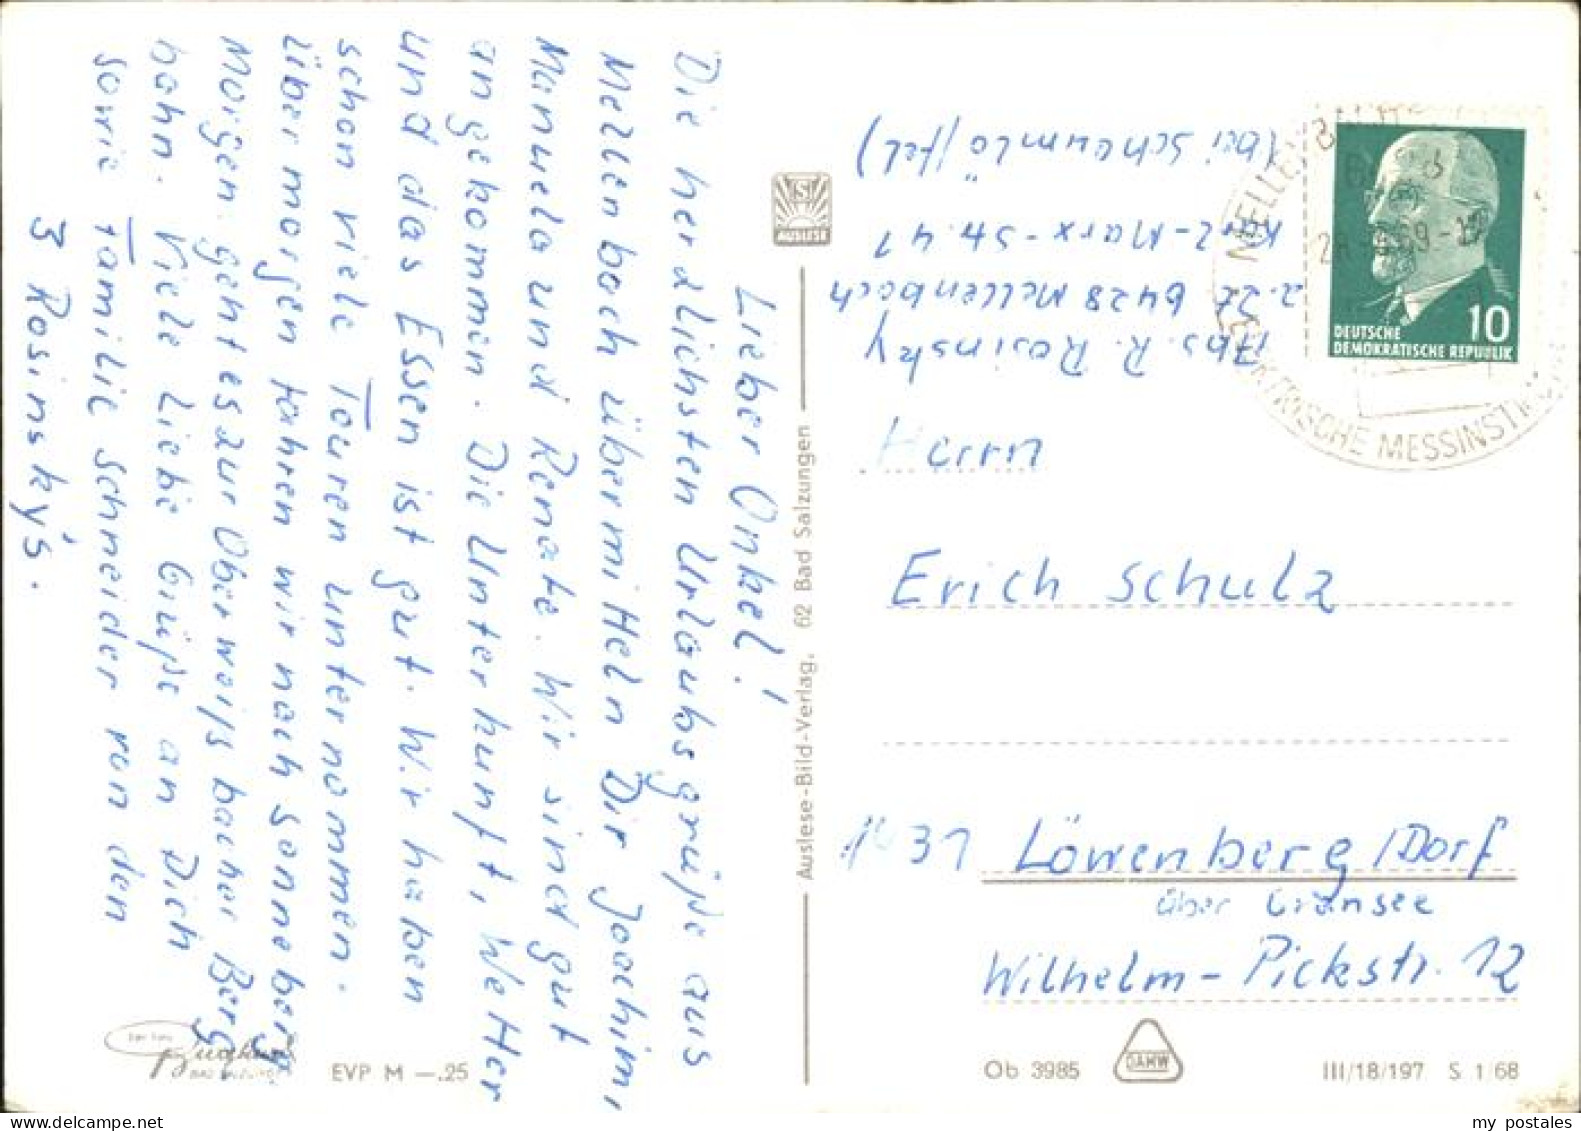 Lieber Onkel!
Die herzlichsten Urlaubsgrüße aus
Mellenbach übermitteln Dir Joachim,
Manuela und Renate. Wir sind gut
angekommen. Die Unterkunft, Wetter
und das Essen ist gut. Wir haben
schon viele Touren unternommen.
Übermorgen fahren wir nach Sonneberg.
Morgen geht es zur Oberweißbacher Berg
bahn. Viele liebe Grüße an Dich
sowie Familie Schneider von den
3 Rosinsky's.
Abs. R. Rosinsky
z.Zt. 6428 Mellenbach
Karl-Marx-Str. 41
(bei Schaumlöffel)
AUSLESE
Auslese-Bild-Verlag, 62 Bad Salzungen
10
DEUTSCHE
DEMOKRATISCHE REPUBLIK
69-
MESSINST
Herrn
Erich Schulz
1431 Löwenberg/Dorf
über Gransee
Wilhelm-Pickstr. 12
BAD SALZUNGEN
EVP M —.25
Ob 3985
DAMW
III/18/197 S 1/68
my postales